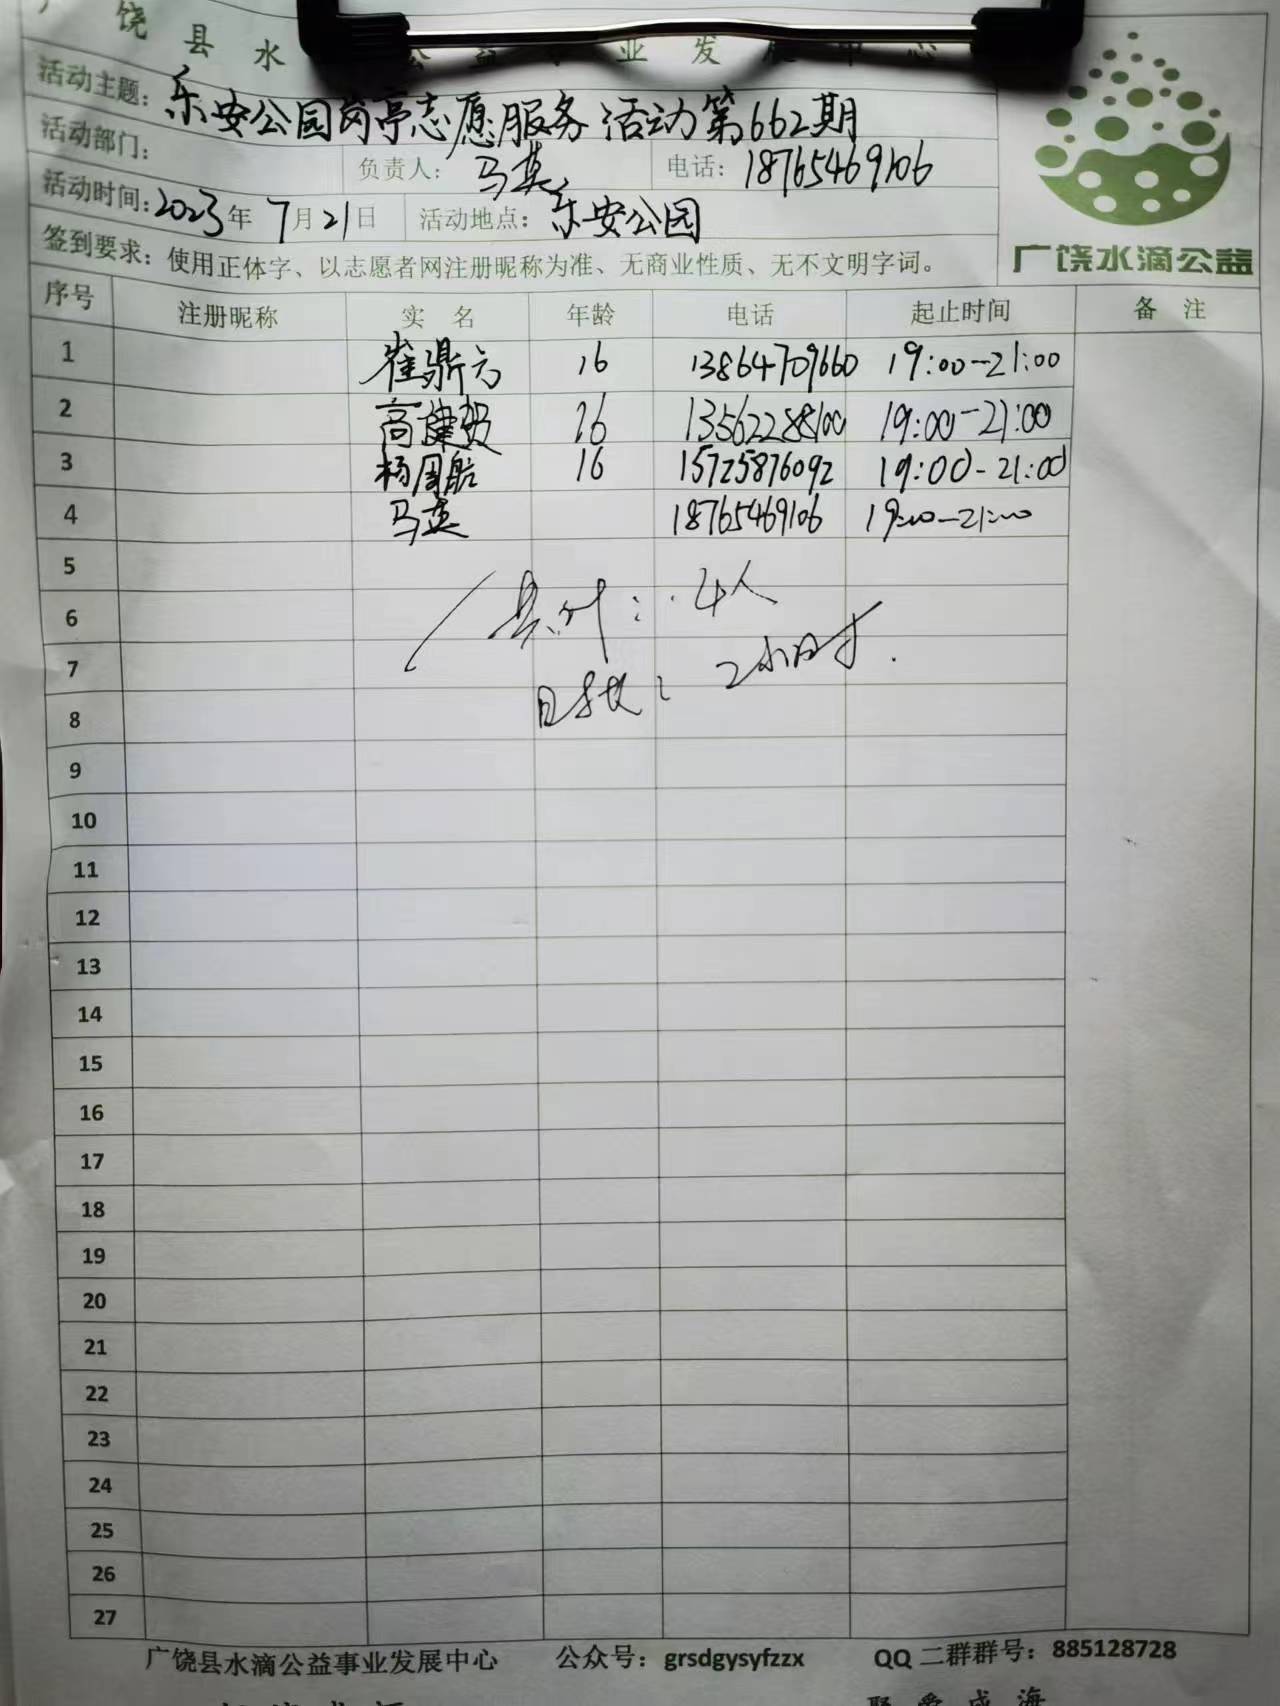 饶县水 公益 业发展中心
活动主题：乐安公园岗亭志愿服务活动第662期
活动部门： 负责人：马英 电话：18765469106
活动时间：2023年7月21日 活动地点：乐安公园
签到要求：使用正体字、以志愿者网注册昵称为准、无商业性质、无不文明字词。
广饶水滴公益
序号 注册昵称 实 名 年龄 电话 起止时间 备 注
1 崔鼎方 16 13864709660 19:00-21:00
2 高健 16 13562288100 19:00-21:00
3 杨周航 16 15725876092 19:00-21:00
4 马英 18765469106 19:00-21:00
5
6 共计：4人
7 2小时.
8
9
10
11
12
13
14
15
16
17
18
19
20
21
22
23
24
25
26
27
广饶县水滴公益事业发展中心 公众号：grsdgysyfzzx QQ二群群号：885128728
聚爱成海